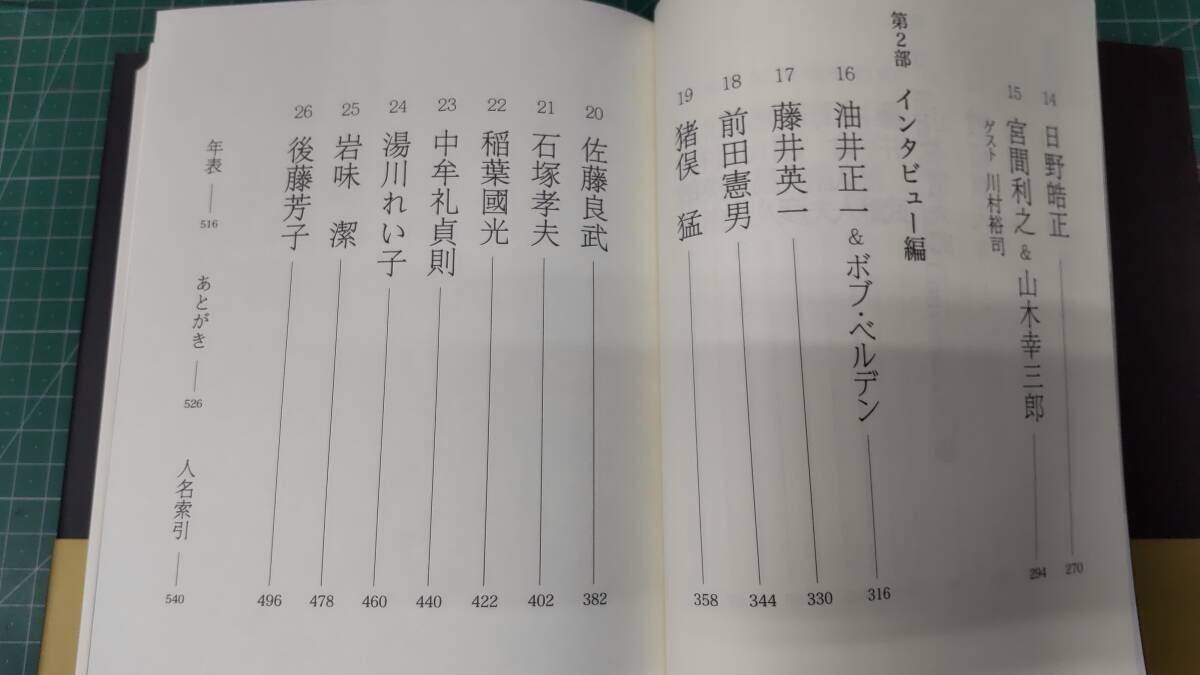 14 日野皓正 270
15 宮間利之&山木幸三郎 294
ゲスト 川村裕司
第2部 インタビュー編
16 油井正一&ボブ・ベルデン 316
17 藤井英一 330
18 前田憲男 344
19 猪俣 猛 358
20 佐藤良武 382
21 石塚孝夫 402
22 稲葉國光 422
23 中牟礼貞則 440
24 湯川れい子 460
25 岩味 潔 478
26 後藤芳子 496
年表 516
あとがき 526
人名索引 540